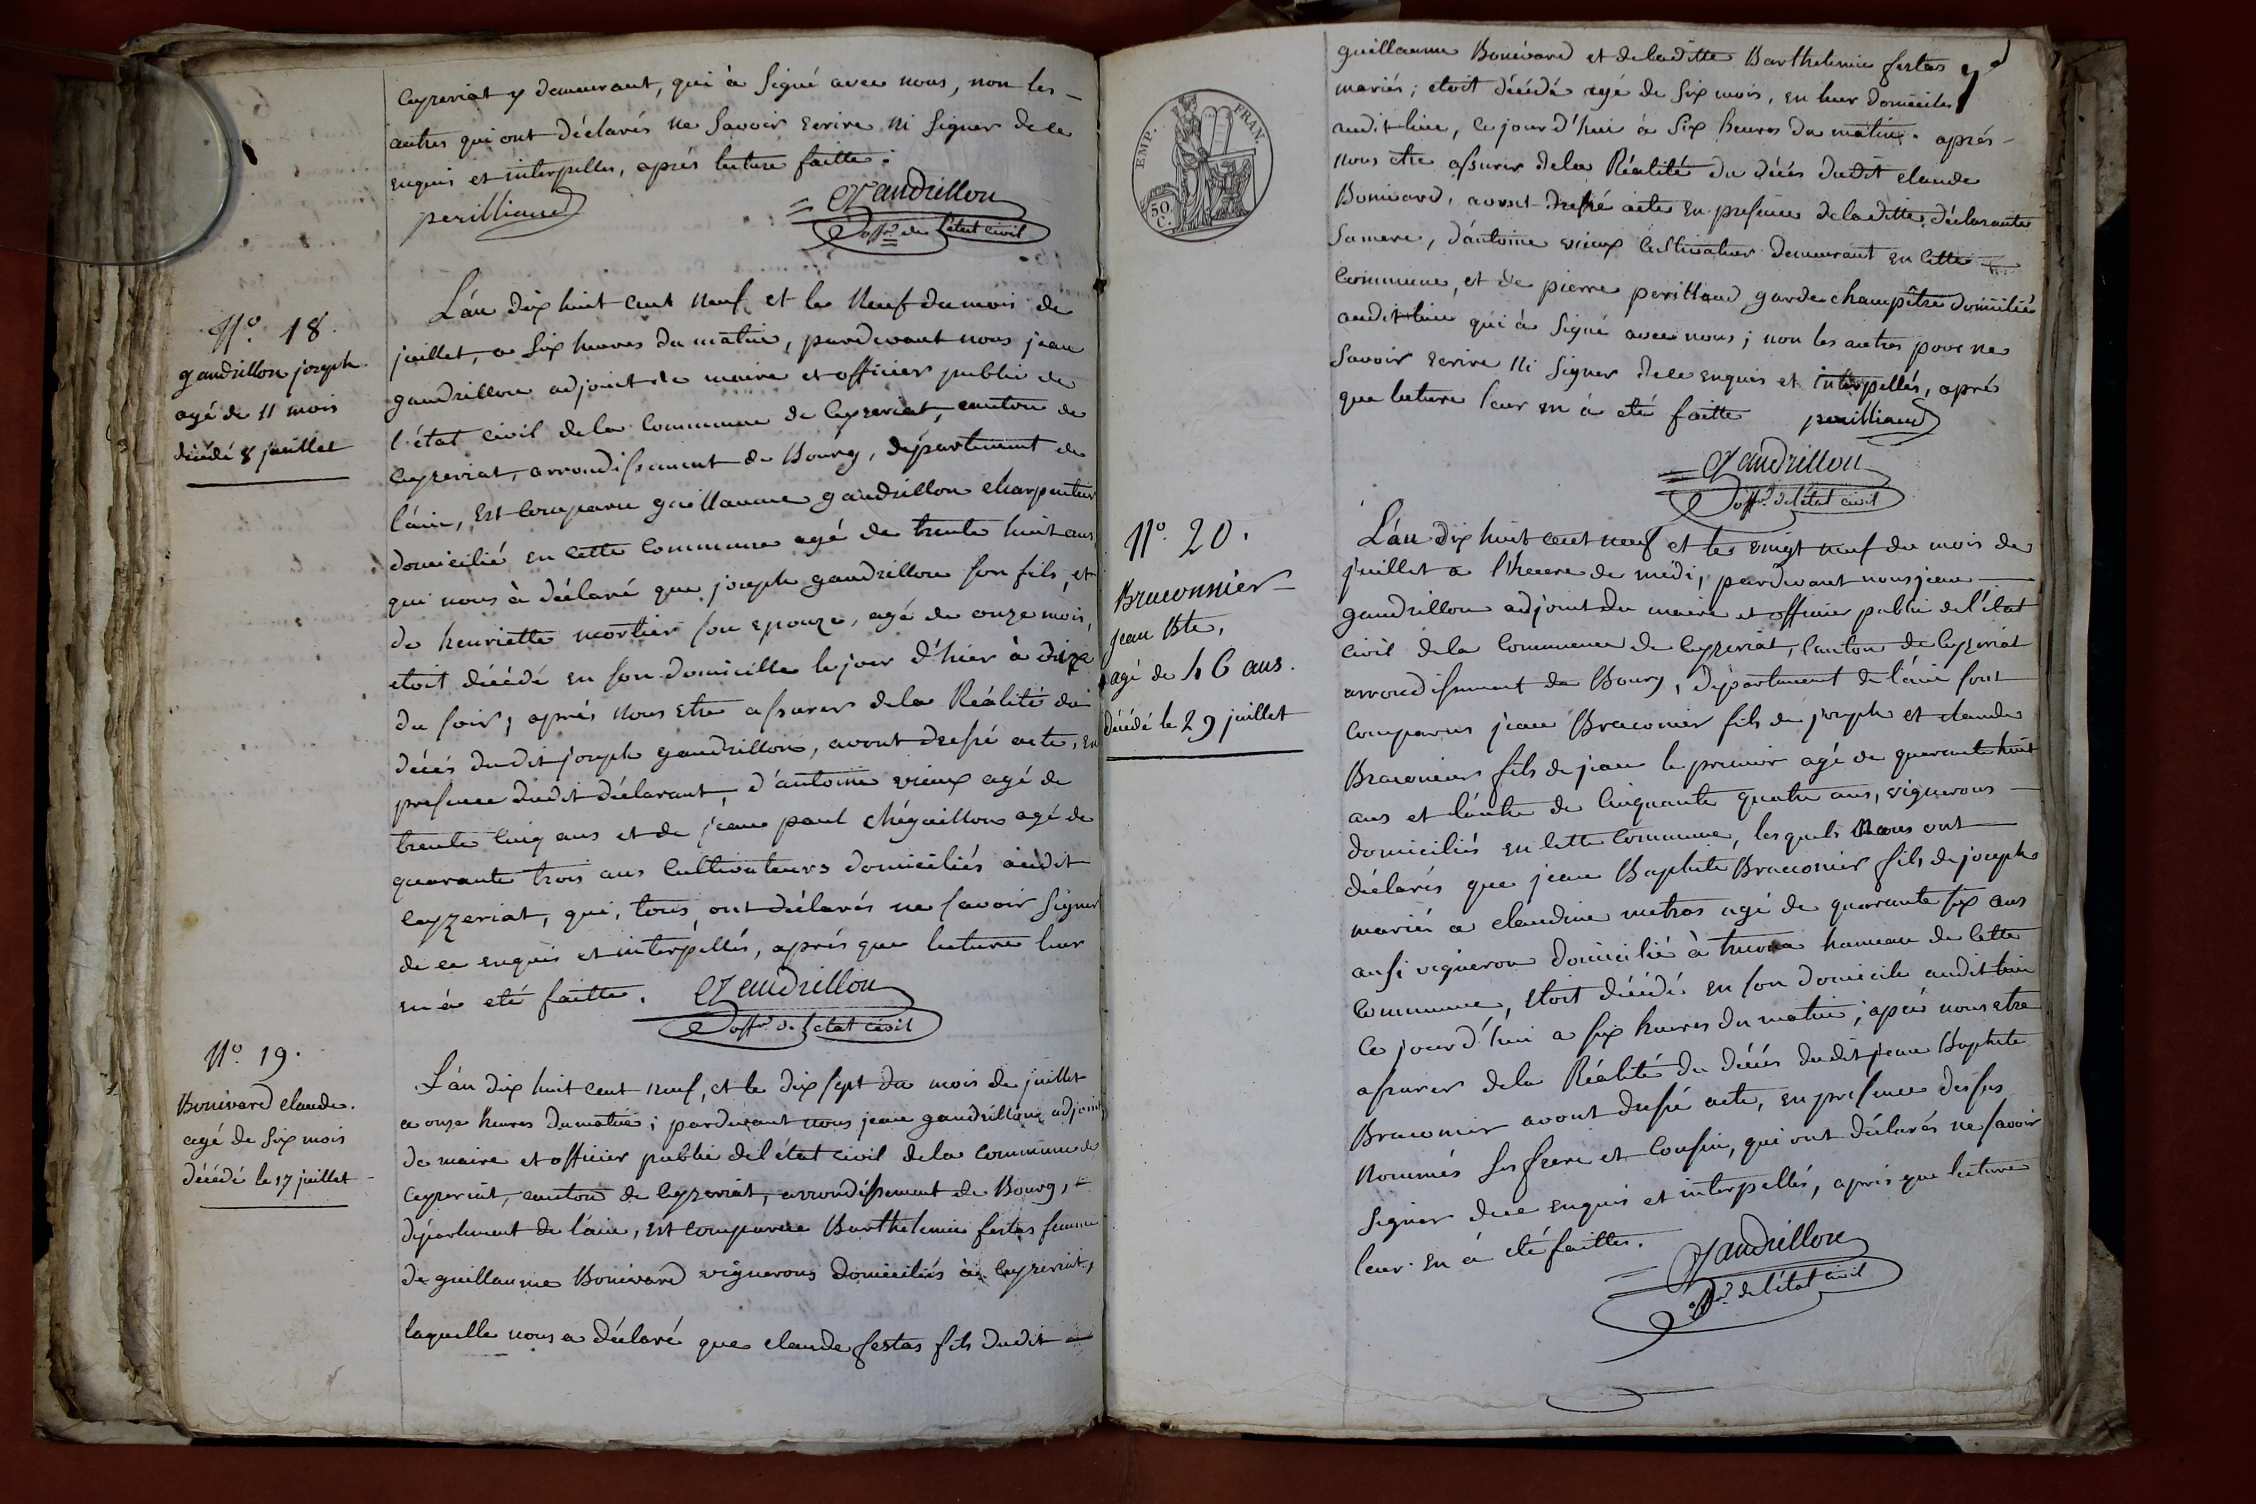 Ceyzeriat y demeurant, qui à Signé avec nous, non les
autres qui ont déclarés ne Savoir ecrire ni Signer de ce
enquis et interpellés, aprés lecture faitte.
perilliaud
Gandrillon
offr de l'état civil
N° 18.
gandrillon joseph.
agé de 11 mois
décédé 8 juillet
L'an dix huit cent neuf et le Neuf du mois de
juillet, a Six heures du matin, pardevant nous jean
gandrillon adjoint de maire et officier public de
l'état civil de la Commune de Ceyzeriat, canton de
Ceyzeriat, arrondissement de Bourg, département de
l'ain, Est Comparu guillaume gandrillon charpentier
domicilié en cette Commune agé de trente huit ans
qui nous à déclaré que joseph gandrillon son fils, et
de henriette mortier son epouze, agé de onze mois,
etoit décédé en son domicille le jour d'hier à dix
du soir, aprés nous etre assurer de la Réalité du
décés dudit joseph gandrillon, avont dressé acte, en
presence dudit déclarant, d'antoine vieux agé de
trente cinq ans et de jean paul chégaillon agé de
quarante trois ans Cultivateurs domiciliés audit
Ceyzeriat, qui, tous, ont déclarés ne savoir Signer
de ce enquis et interpéllés, aprés que lecture leur
en à eté faitte.
Gandrillon
offr de l'état civil
N° 19.
Bonivard claude.
agé de Six mois
décédé le 17 juillet
L'an dix huit cent neuf, et le dix sept du mois de juillet
a onze heures du matin; pardevant nous jean gandrillon adjoint
de maire et officier public de l'état civil de la commune de
Ceyzeriat, canton de Ceyzeriat, arrondissement de Bourg,
département de l'ain, est comparue Barthelemie festas femme
de guillaume Bonivard vignerons domiciliés à Ceyzeriat,
laquelle nous a déclaré que claude festas fils dudit
EMP. FRAN.
50 C.
guillaume Bonivard et de laditte Barthelemie festas
mariés; etoit décédé agé de Six mois, en leur domicile
audit lieu, ce jourd'hui à Six heures du matin. aprés
nous etre assurer de la Réalité du décés dudit claude
Bonivard, avont dressé acte en presence de laditte déclarante
Sa mere, d'antoine vieux Cultivateur demeurant en cette
Commune, et de pierre perilliaud garde champêtre domicilié
audit lieu qui à Signé avec nous; non les autres pour ne
Savoir ecrire Ni Signer de ce enquis et interpellés, aprés
que lecture leur en à eté faitte
perilliaud
Gandrillon
offr de l'état civil
N° 20.
Braconnier
jean Bte,
agé de 46 ans.
décédé le 29 juillet
L'an dix huit cent neuf et le vingt neuf du mois de
juillet a l'heure de midi, pardevant nous jean
gandrillon adjoint du maire et officier public de l'état
civil de la Commune de Ceyzeriat, Canton de Ceyzeriat
arrondissement de Bourg, département de l'ain sont
Comparus jean Braconier fils de joseph et claude
Braconiers fils de jean le premier agé de quarante huit
ans et l'autre de Cinquante quatre ans, vignerons
domiciliés en cette Commune, lesquels Nous ont
déclarés que jean Baptiste Braconier fils de joseph
marié a claudine metras agé de quarante six ans
aussi vigneron domicilié à hameau de cette
Commune, etoit décédé en son domicile audit lieu
Ce jourd'hui a six heures du matin; aprés nous etre
assurer de la Réalité du décés dudit jean Baptiste
Braconier avont dressé acte, en presence desus
Nommés Ses frere et Cousin, qui ont déclarés ne savoir
Signer de ce enquis et interpellés, aprés que lecture
leur en à eté faitte.
Gandrillon
offr de l'état civil